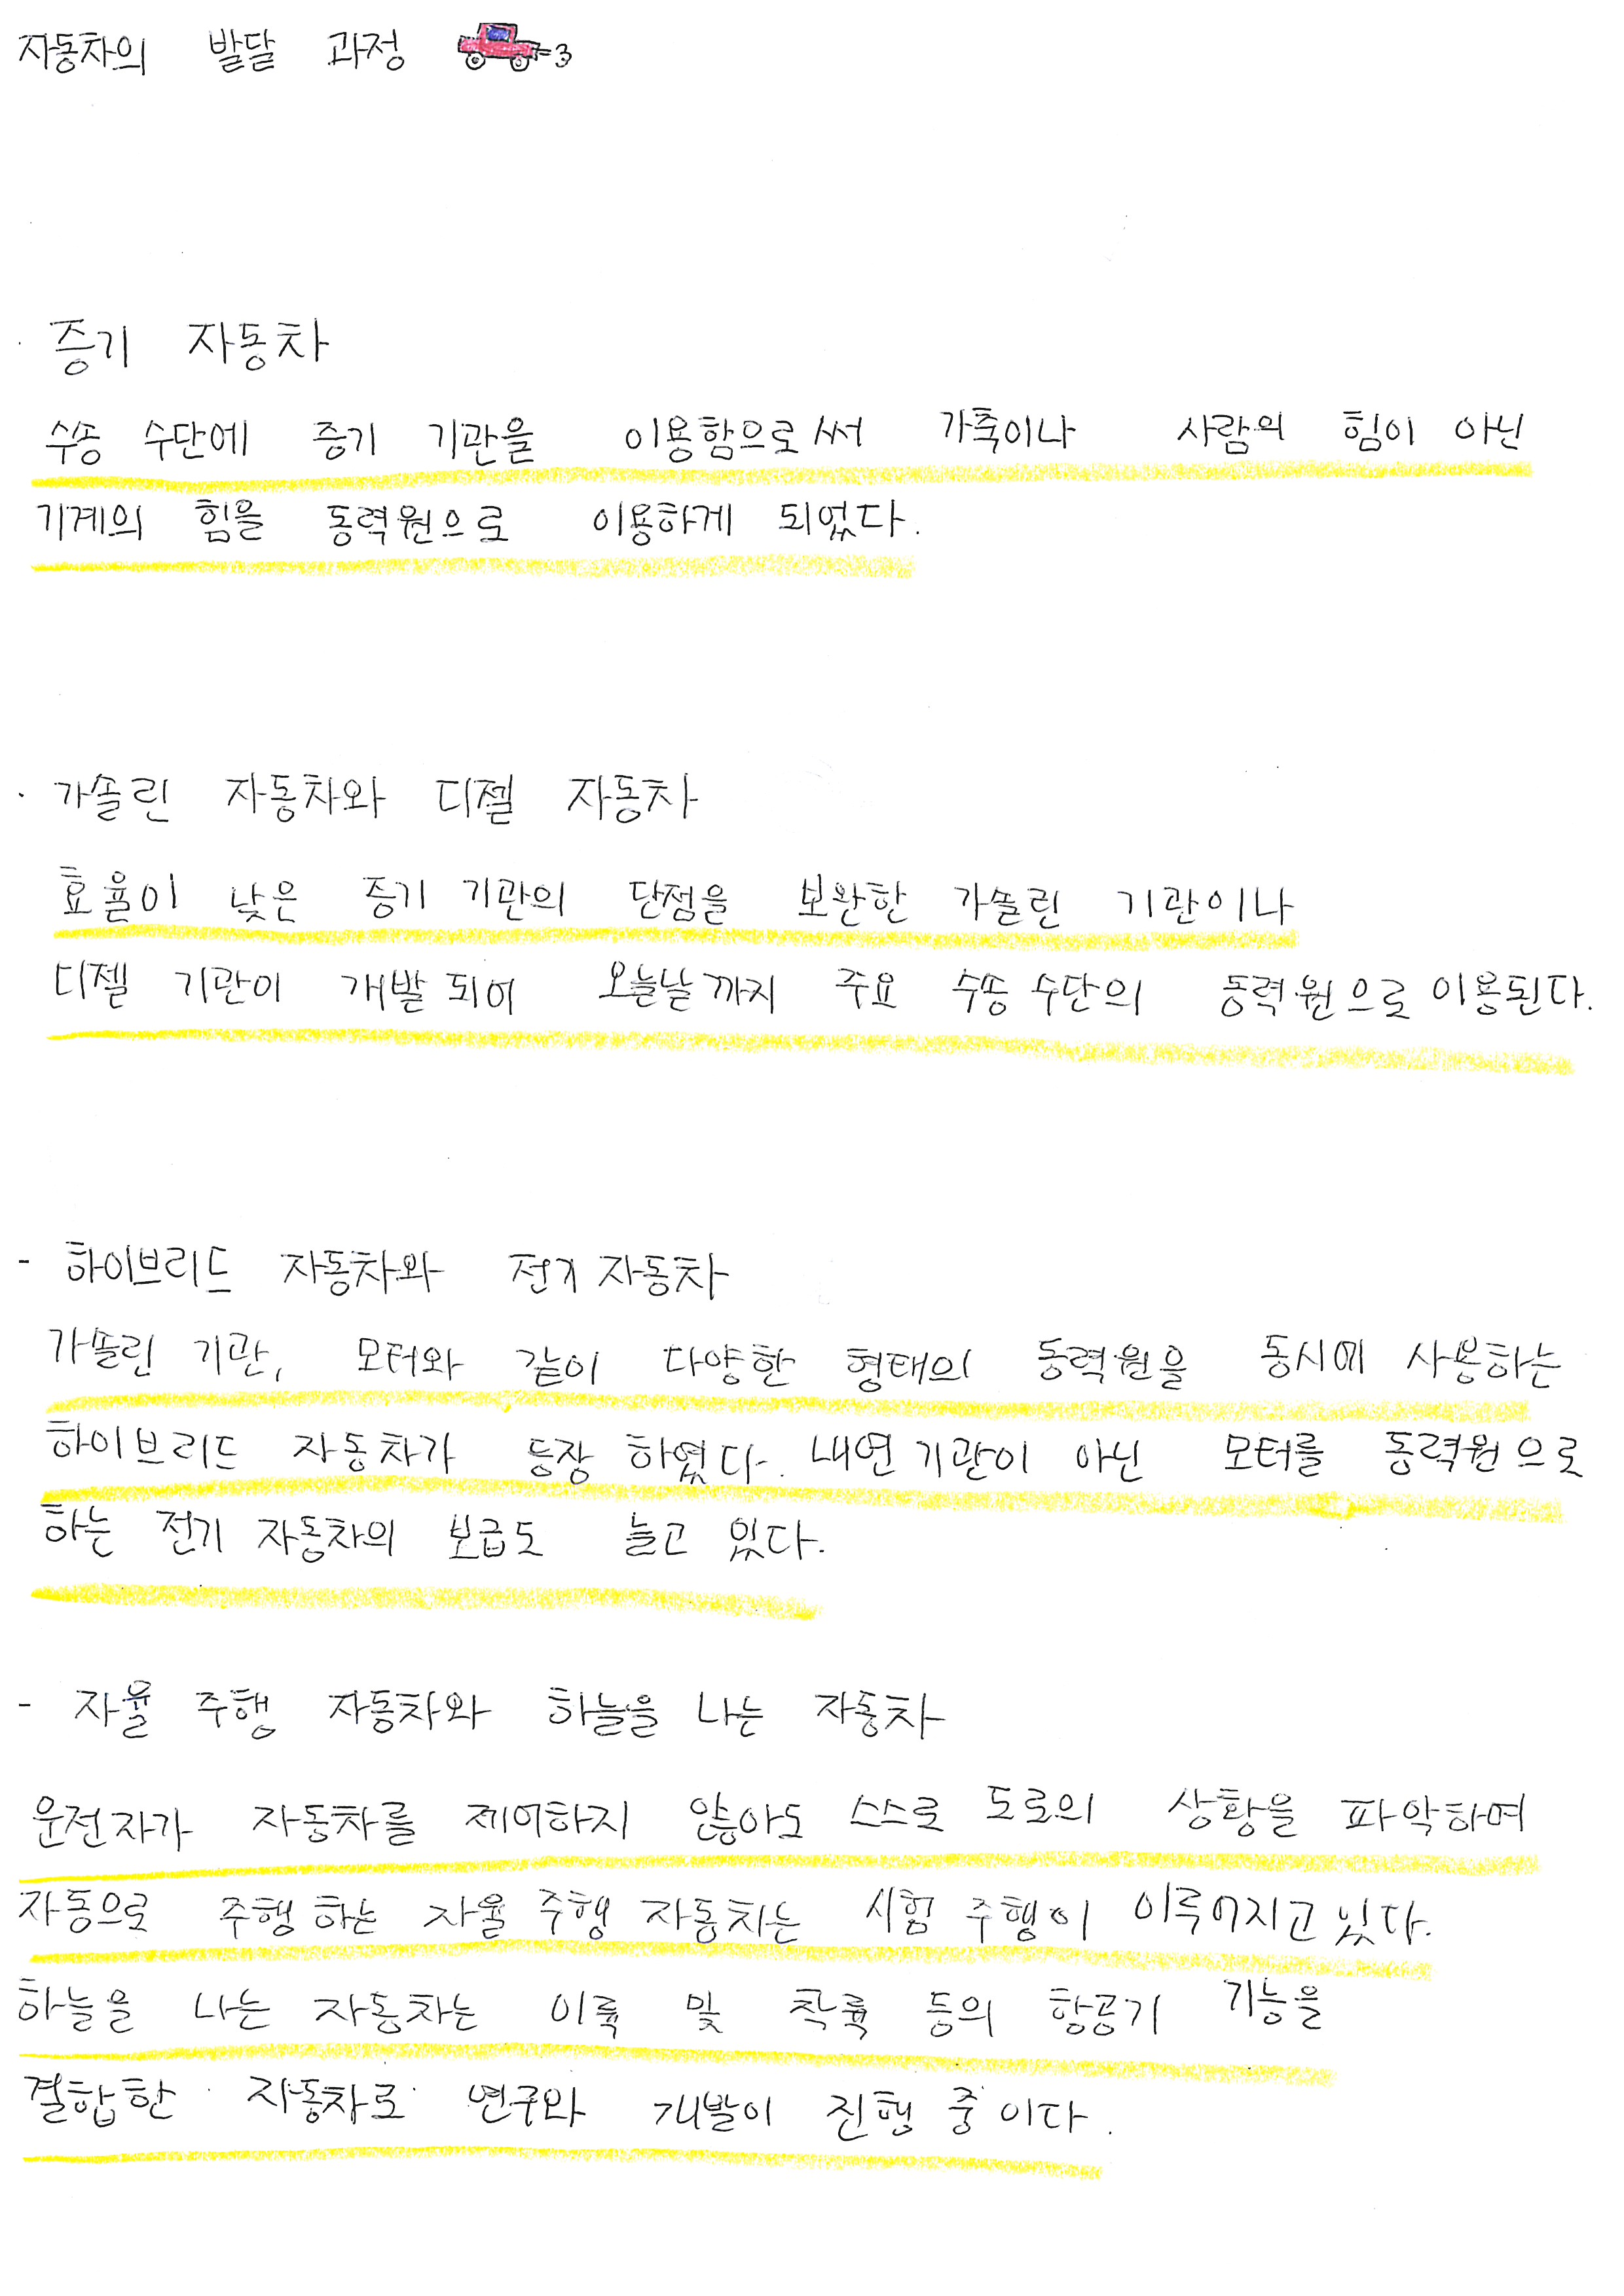 자동차의 발달 과정
· 증기 자동차
수송 수단에 증기 기관을 이용함으로써 가축이나 사람의 힘이 아닌
기계의 힘을 동력원으로 이용하게 되었다.
· 가솔린 자동차와 디젤 자동차
효율이 낮은 증기 기관의 단점을 보완한 가솔린 기관이나
디젤 기관이 개발되어 오늘날까지 주요 수송 수단의 동력원으로 이용된다.
- 하이브리드 자동차와 전기 자동차
가솔린 기관, 모터와 같이 다양한 형태의 동력원을 동시에 사용하는
하이브리드 자동차가 등장 하였다. 내연 기관이 아닌 모터를 동력원으로
하는 전기 자동차의 보급도 늘고 있다.
- 자율 주행 자동차와 하늘을 나는 자동차
운전자가 자동차를 제어하지 않아도 스스로 도로의 상황을 파악하여
자동으로 주행하는 자율 주행 자동차는 시험 주행이 이루어지고 있다.
하늘을 나는 자동차는 이륙 및 착륙 등의 항공기 기능을
결합한 자동차로 연구와 개발이 진행 중이다.